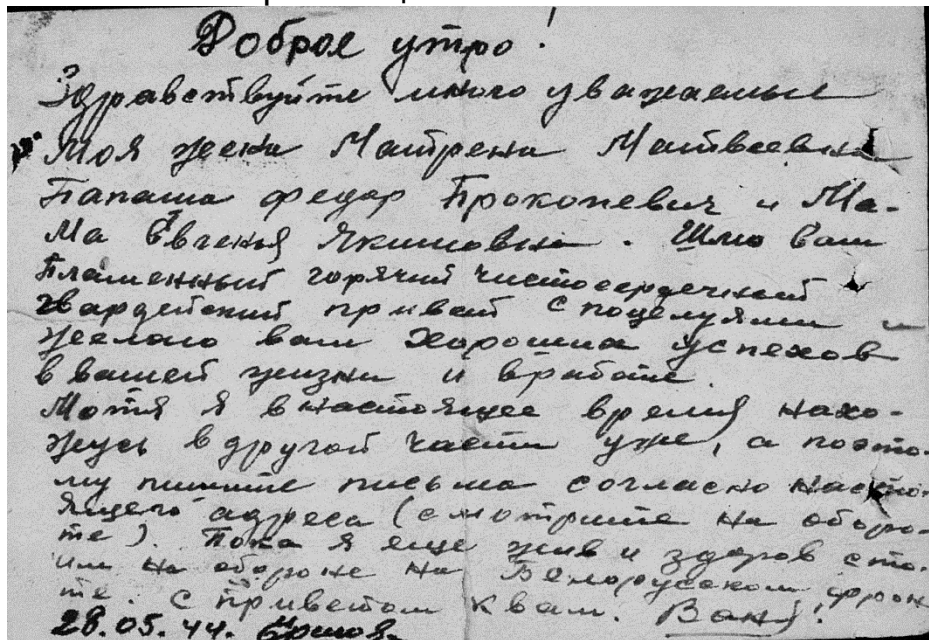 Доброе утро!
Здравствуйте много уважаемые
Моя жена Матрена Матвеевна
Папаша федар Прокопевич и Ма-
ма Евгенья Якимовна. Шлю вам
Пламенный горячий чистосердечный
гвардейский привет с поцелуями и
желаю вам хороших успехов
в вашей жизни и вработе.
Мотя я внастоящее время нахо-
жусь в другой части уже, а поэто-
му пишите письма согласно насто-
ящего адреса (смотрите на оборо-
те). Пока я еще жив и здоров сто-
им на обороне на Белоруском фрон
те. С приветом квам. Ваня.
28.05.44.